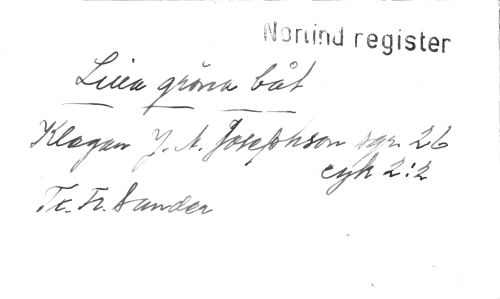 Norlind register
Lilla gröna båt
Klagan J. A. Josephson sgr. 26
cyk 2:2
Tr. Fr. Sander